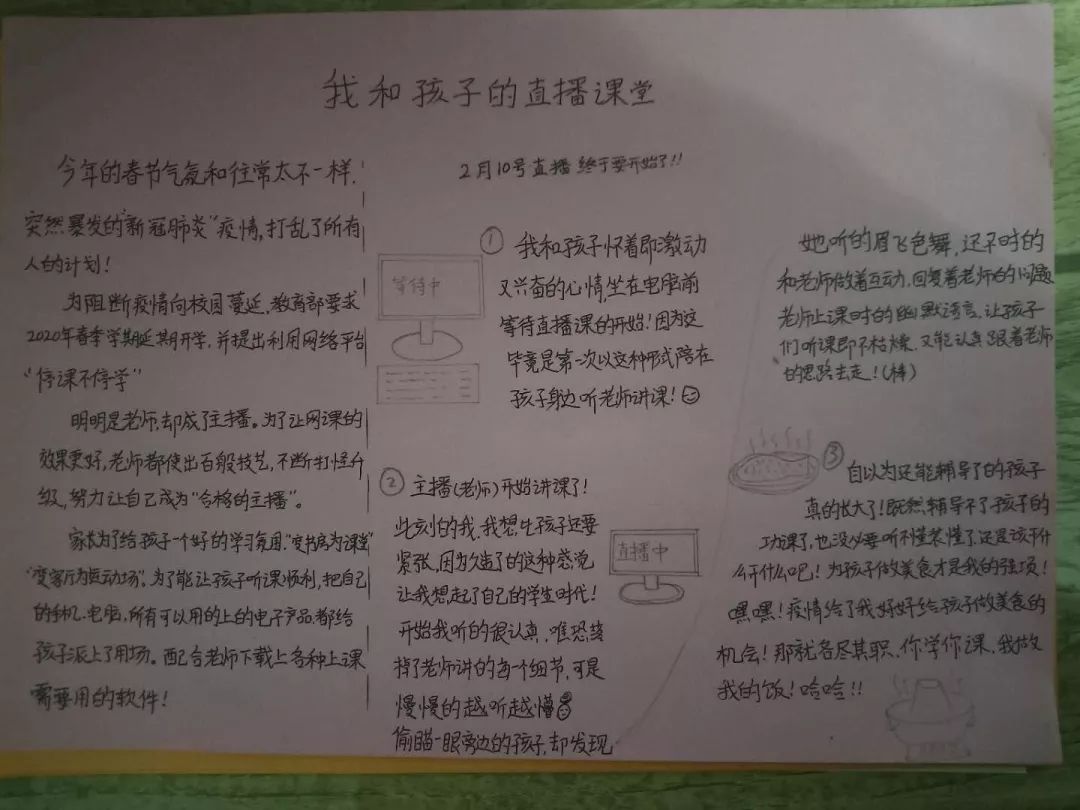 我和孩子的直播课堂
今年的春节气氛和往常太不一样,
突然暴发的"新冠肺炎"疫情,打乱了所有
人的计划!
为阻断疫情向校园蔓延,教育部要求
2020年春季学期延期开学,并提出利用网络平台
"停课不停学"
明明是老师,却成了主播。为了让网课的
效果更好,老师都使出百般技艺,不断打怪升
级,努力让自己成为"合格的主播"。
家长为了给孩子一个好的学习氛围."变书房为课堂"
"变客厅为运动场".为了能让孩子听课顺利,把自己
的手机.电脑,所有可以用的上的电子产品都给
孩子派上了用场。配合老师下载上各种上课
需要用的软件!
2月10号直播终于要开始了!!
等待中
① 我和孩子怀着即激动
又兴奋的心情坐在电脑前
等待直播课的开始!因为这
毕竟是第一次以这种形式陪在
孩子身边听老师讲课!
② 主播(老师)开始讲课了!
此刻的我,我想比孩子还要
紧张,因为久违了的这种感觉
让我想起了自己的学生时代!
开始我听的很认真,唯恐落
掉了老师讲的每一个细节,可是
慢慢的越听越懵
偷瞄一眼旁边的孩子,却发现
直播中
她听的眉飞色舞,还不时的
和老师做着互动,回复着老师的问题
老师上课时的幽默语言,让孩子
们听课即不枯燥,又能认真跟着老师
的思路去走!(棒)
③ 自以为还能辅导了的孩子
真的长大了!既然辅导不了孩子的
功课了,也没必要听不懂装懂了,还是该干什
么干什么吧!为孩子做美食才是我的强项!
嘿嘿!疫情给了我好好给孩子做美食的
机会!那就各尽其职,你学你课,我做
我的饭!哈哈!!